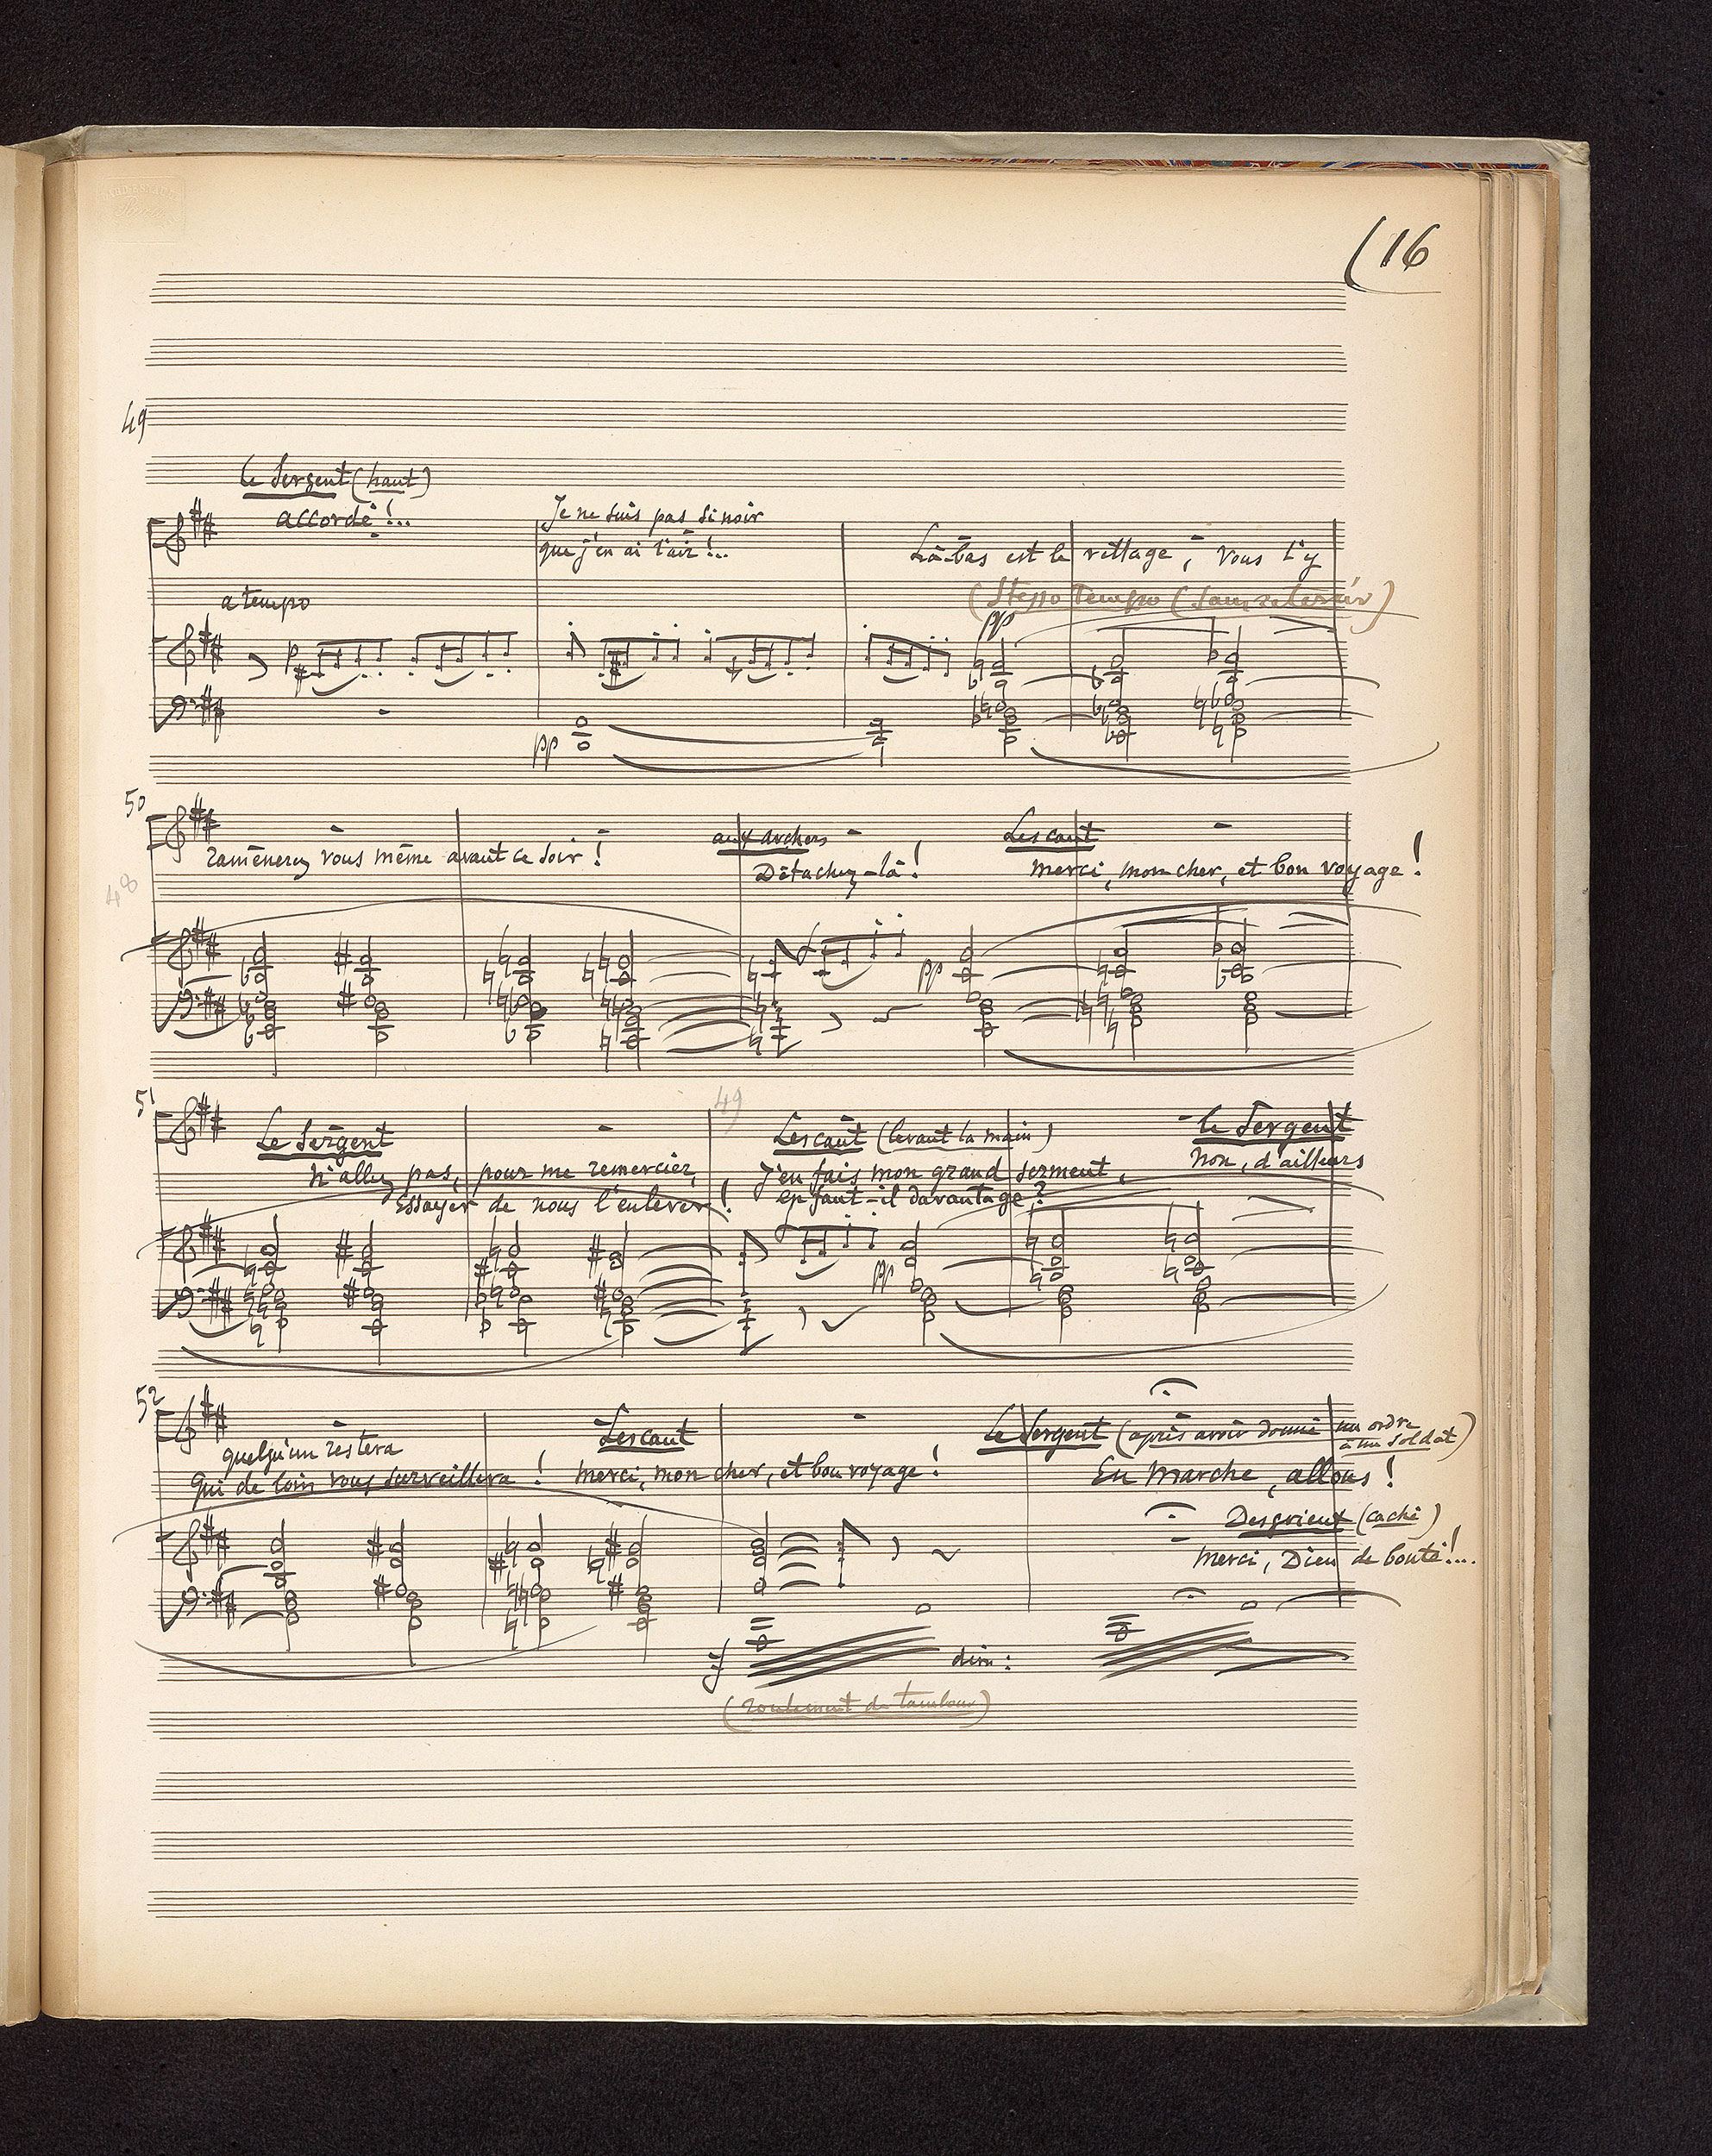 (16
49
Le Sergent (haut)
accordé !...
Je ne suis pas si noir
que j'en ai l'air !..
Là-bas est le village, vous l'y
a tempo
(Stesso Tempo (sans retenir)
p
pp
pp
50
ramènerez vous même avant ce soir !
aux archers
Détachez-là !
Lescaut
Merci, mon cher, et bon voyage !
48
pp
51
49
Le Sergent
N'allez pas, pour me remercier,
Essayer de nous l'enlever !
Lescaut (levant la main)
J'en fais mon grand serment,
en faut-il davantage ?
le Sergent
Non, d'ailleurs
pp
52
quelqu'un restera
Qui de loin vous surveillera !
Lescaut
Merci, mon cher, et bon voyage !
Le Sergent (après avoir donné un ordre
à un soldat)
En marche, allons !
Desgrieux (caché)
Merci, Dieu de bonté !...
f
dim :
(roulement de tambour)